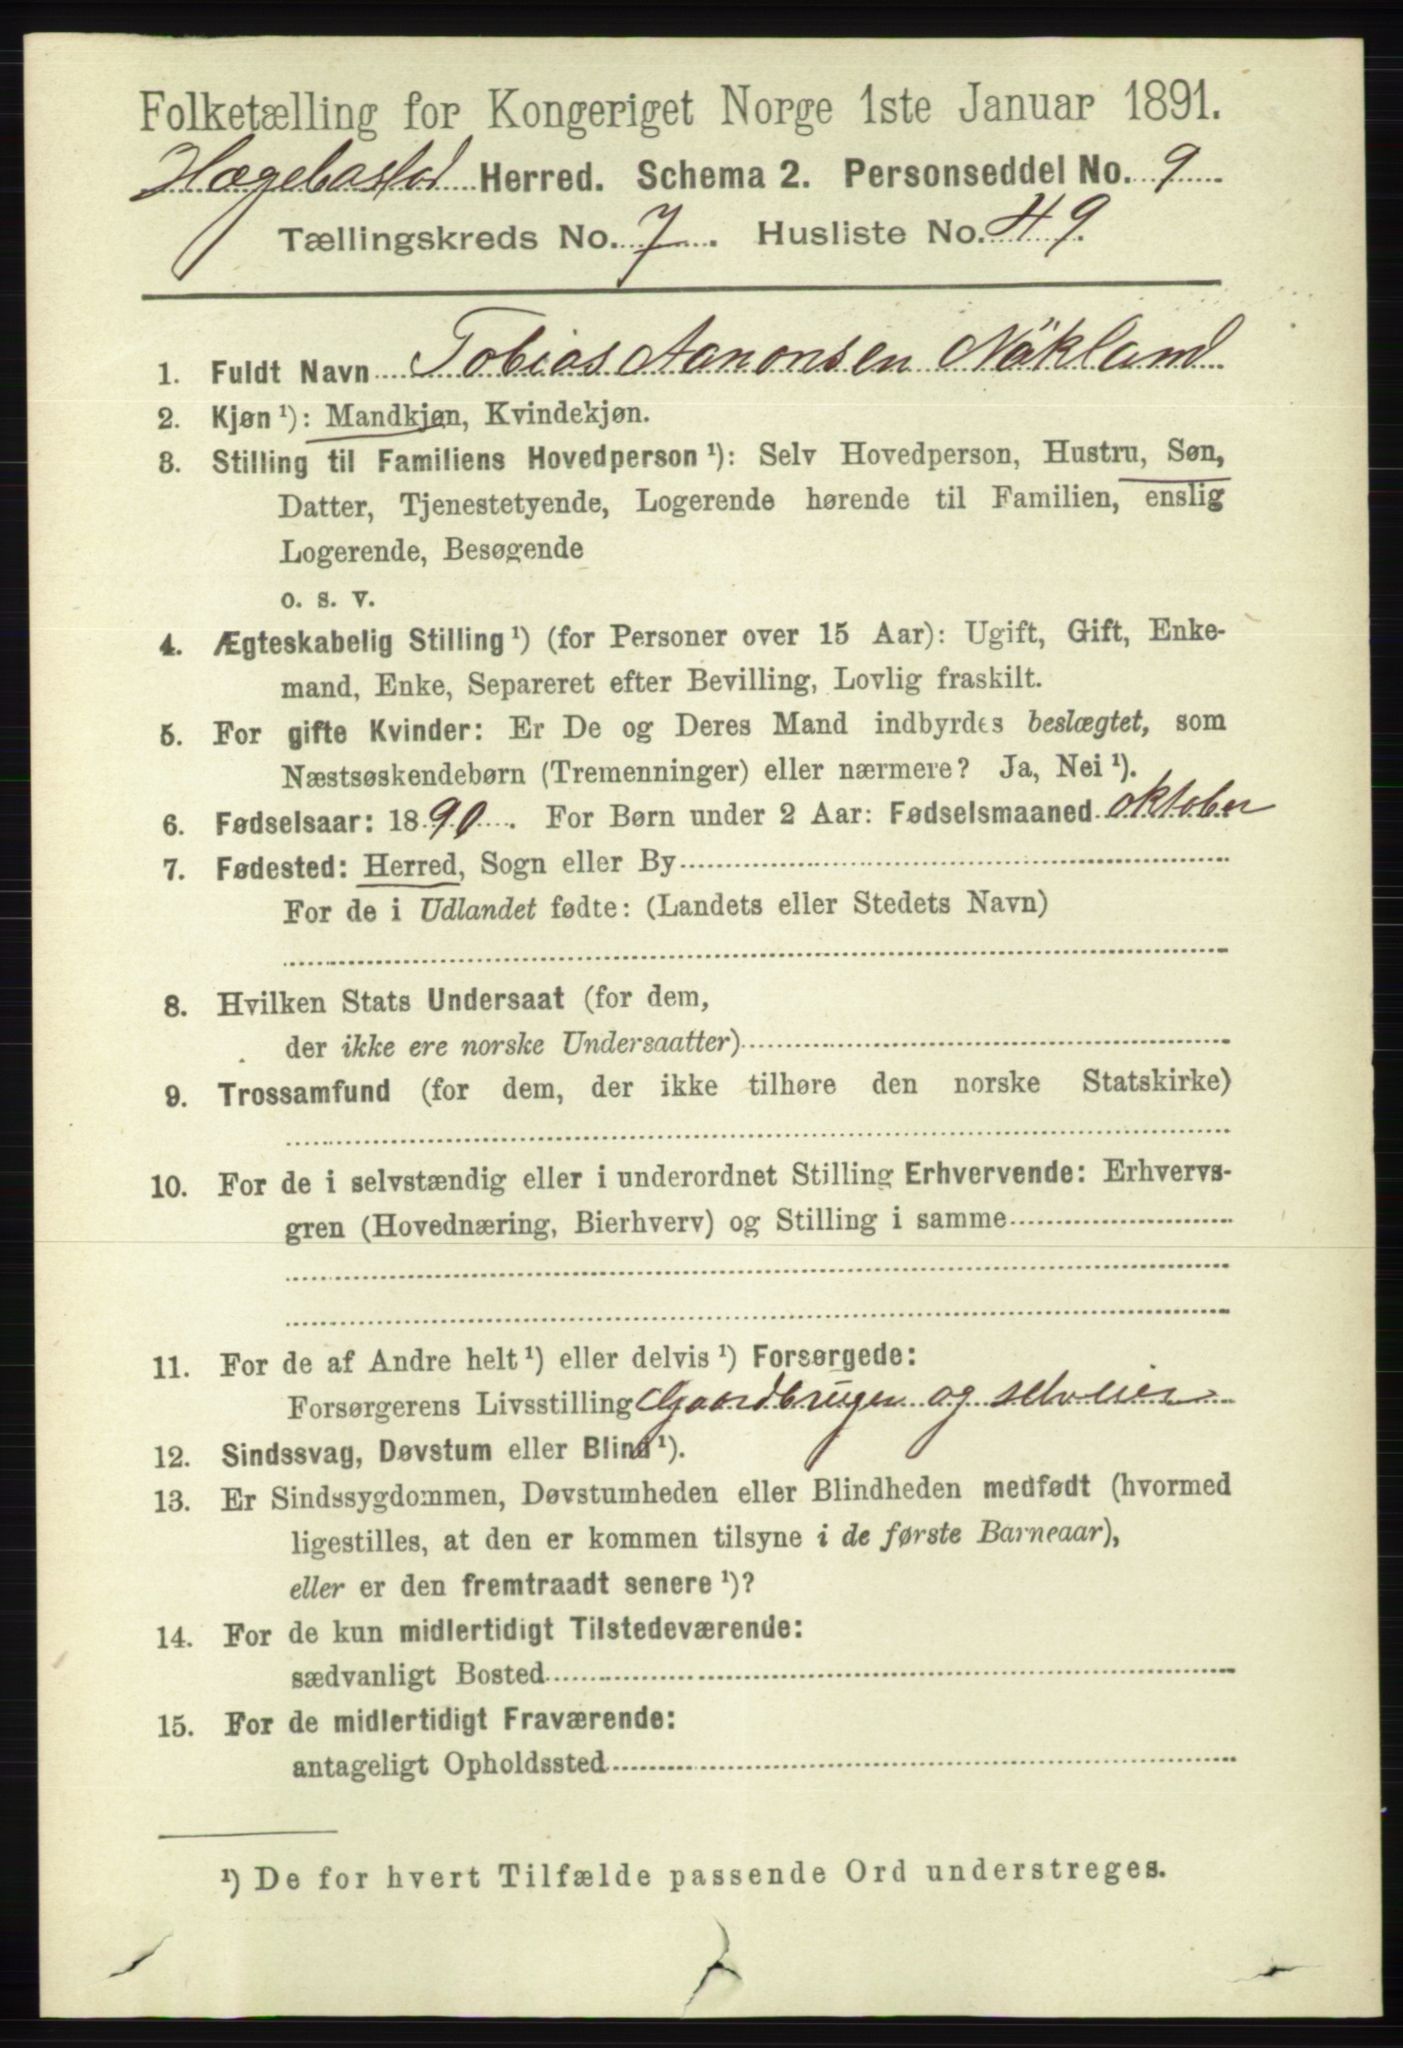 Folketælling for Kongeriget Norge 1ste Januar 1891.
Hægebostad Herred. Schema 2. Personseddel No. 9
Tællingskreds No. 7. Husliste No. 49.
1. Fuldt Navn Tobias Aanonsen Nökland
2. Kjøn ¹): Mandkjøn, Kvindekjøn.
3. Stilling til Familiens Hovedperson ¹): Selv Hovedperson, Hustru, Søn,
Datter, Tjenestetyende, Logerende hørende til Familien, enslig
Logerende, Besøgende
o. s. v.
4. Ægteskabelig Stilling ¹) (for Personer over 15 Aar): Ugift, Gift, Enke-
mand, Enke, Separeret efter Bevilling, Lovlig fraskilt.
5. For gifte Kvinder: Er De og Deres Mand indbyrdes beslægtet, som
Næstsøskendebørn (Tremenninger) eller nærmere? Ja, Nei ¹).
6. Fødselsaar: 1890. For Børn under 2 Aar: Fødselsmaaned oktober
7. Fødested: Herred, Sogn eller By
For de i Udlandet fødte: (Landets eller Stedets Navn)
8. Hvilken Stats Undersaat (for dem,
der ikke ere norske Undersaatter)
9. Trossamfund (for dem, der ikke tilhøre den norske Statskirke)
10. For de i selvstændig eller i underordnet Stilling Erhvervende: Erhvervs-
gren (Hovednæring, Bierhverv) og Stilling i samme
11. For de af Andre helt ¹) eller delvis ¹) Forsørgede:
Forsørgerens Livsstilling Gaardbruger og selveier
12. Sindssvag, Døvstum eller Blind ¹).
13. Er Sindssygdommen, Døvstumheden eller Blindheden medfødt (hvormed
ligestilles, at den er kommen tilsyne i de første Barneaar),
eller er den fremtraadt senere ¹)?
14. For de kun midlertidigt Tilstedeværende:
sædvanligt Bosted
15. For de midlertidigt Fraværende:
antageligt Opholdssted
¹) De for hvert Tilfælde passende Ord understreges.